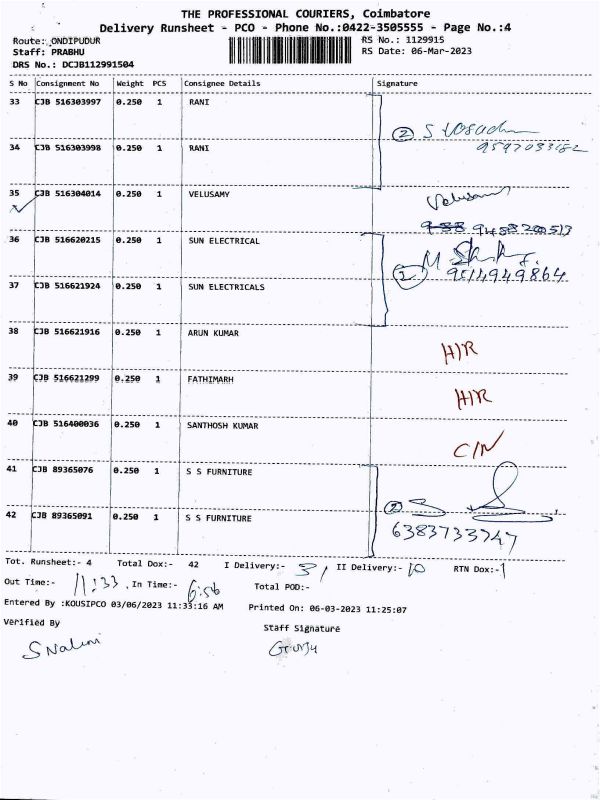 THE PROFESSIONAL COURIERS, Coimbatore
Delivery Runsheet - PCO - Phone No.:0422-3505555 - Page No.:4
Route: ONDIPUDUR RS No.: 1129915
Staff: PRABHU RS Date: 06-Mar-2023
DRS No.: DCJB112991504
S No Consignment No Weight PCS Consignee Details Signature
33 CJB 516303997 0.250 1 RANI
34 CJB 516303998 0.250 1 RANI
35 CJB 516304014 0.250 1 VELUSAMY Velusamy
9488200513
36 CJB 516620215 0.250 1 SUN ELECTRICAL
37 CJB 516621924 0.250 1 SUN ELECTRICALS 2 9514949864
38 CJB 516621916 0.250 1 ARUN KUMAR H/R
39 CJB 516621299 0.250 1 FATHIMARH H/R
40 CJB 516400036 0.250 1 SANTHOSH KUMAR C/N
41 CJB 89365076 0.250 1 S S FURNITURE
42 CJB 89365091 0.250 1 S S FURNITURE 2 6383733747
Tot. Runsheet:- 4 Total Dox:- 42 I Delivery:- II Delivery:- 10 RTN Dox:-1
Out Time:- 11:33 In Time:- 6:56 Total POD:-
Entered By :KOUSIPCO 03/06/2023 11:33:16 AM Printed On: 06-03-2023 11:25:07
Verified By Staff Signature
SNalini